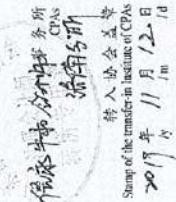 信永中和会计师事务所
CPAs
济南分所
转入协会盖章
Stamp of the transfer-in Institute of CPAs
2017年 11月 12日
/y /m /d